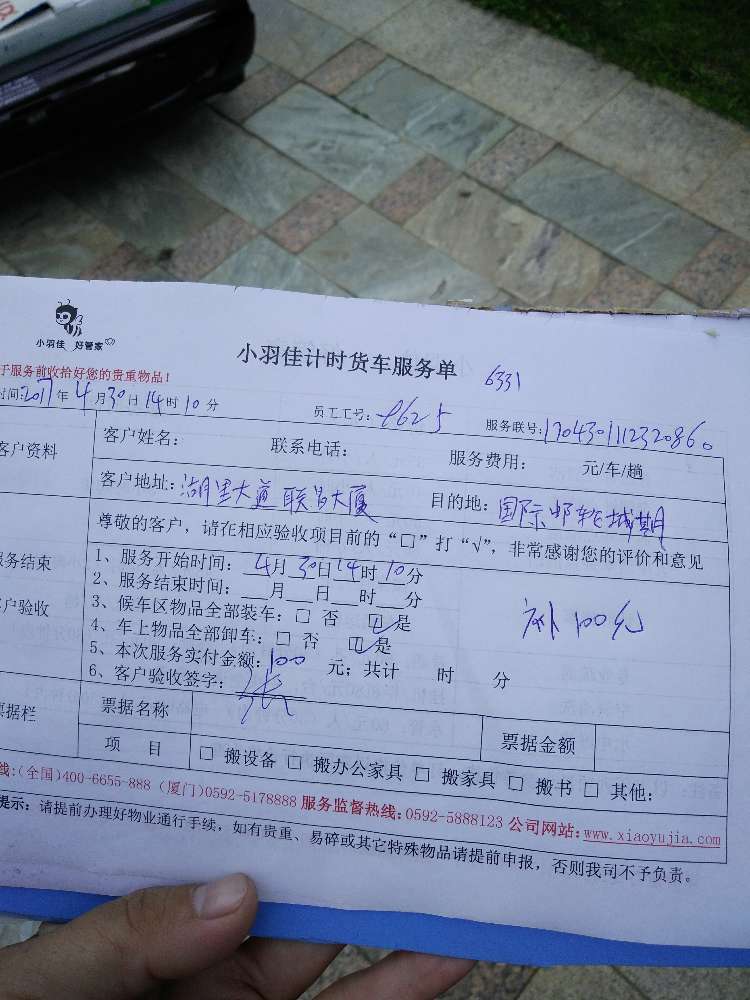 小羽佳 好管家
小羽佳计时货车服务单 6331
于服务前收拾好您的贵重物品！
时间：2017年4月30日14时10分 员工工号：9625 服务联号：170430111232086
客户资料 客户姓名： 联系电话： 服务费用： 元/车/趟
客户地址：湖里大道联昌大厦 目的地：国际邮轮城期
尊敬的客户，请在相应验收项目前的“□”打“√”，非常感谢您的评价和意见
服务结束
客户验收
1、服务开始时间：4月30日14时10分
2、服务结束时间：___月___日___时___分
3、候车区物品全部装车：□ 否 ☑是
4、车上物品全部卸车：□ 否 ☑是
5、本次服务实付金额：100 元；共计 时 分
6、客户验收签字：张
补100元
票据栏 票据名称 票据金额
项 目 □ 搬设备 □ 搬办公家具 □ 搬家具 □ 搬书 □ 其他：
线：(全国)400-6655-888 (厦门)0592-5178888 服务监督热线：0592-5888123 公司网站：www.xiaoyujia.com
提示：请提前办理好物业通行手续，如有贵重、易碎或其它特殊物品请提前申报，否则我司不予负责。